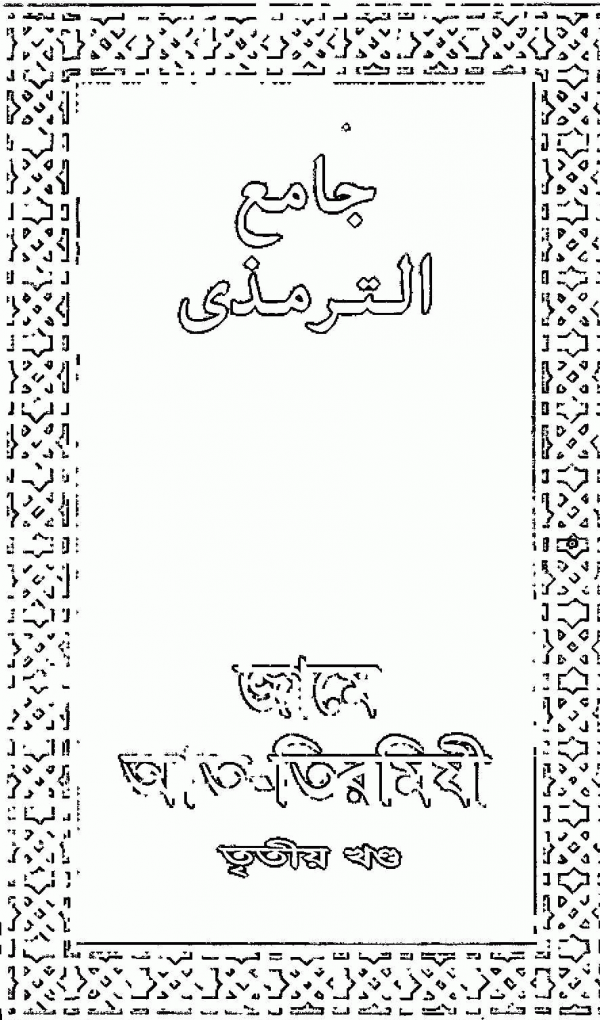 جامع
الترمذى
জামে
আত-তিরমিযী
তৃতীয় খণ্ড